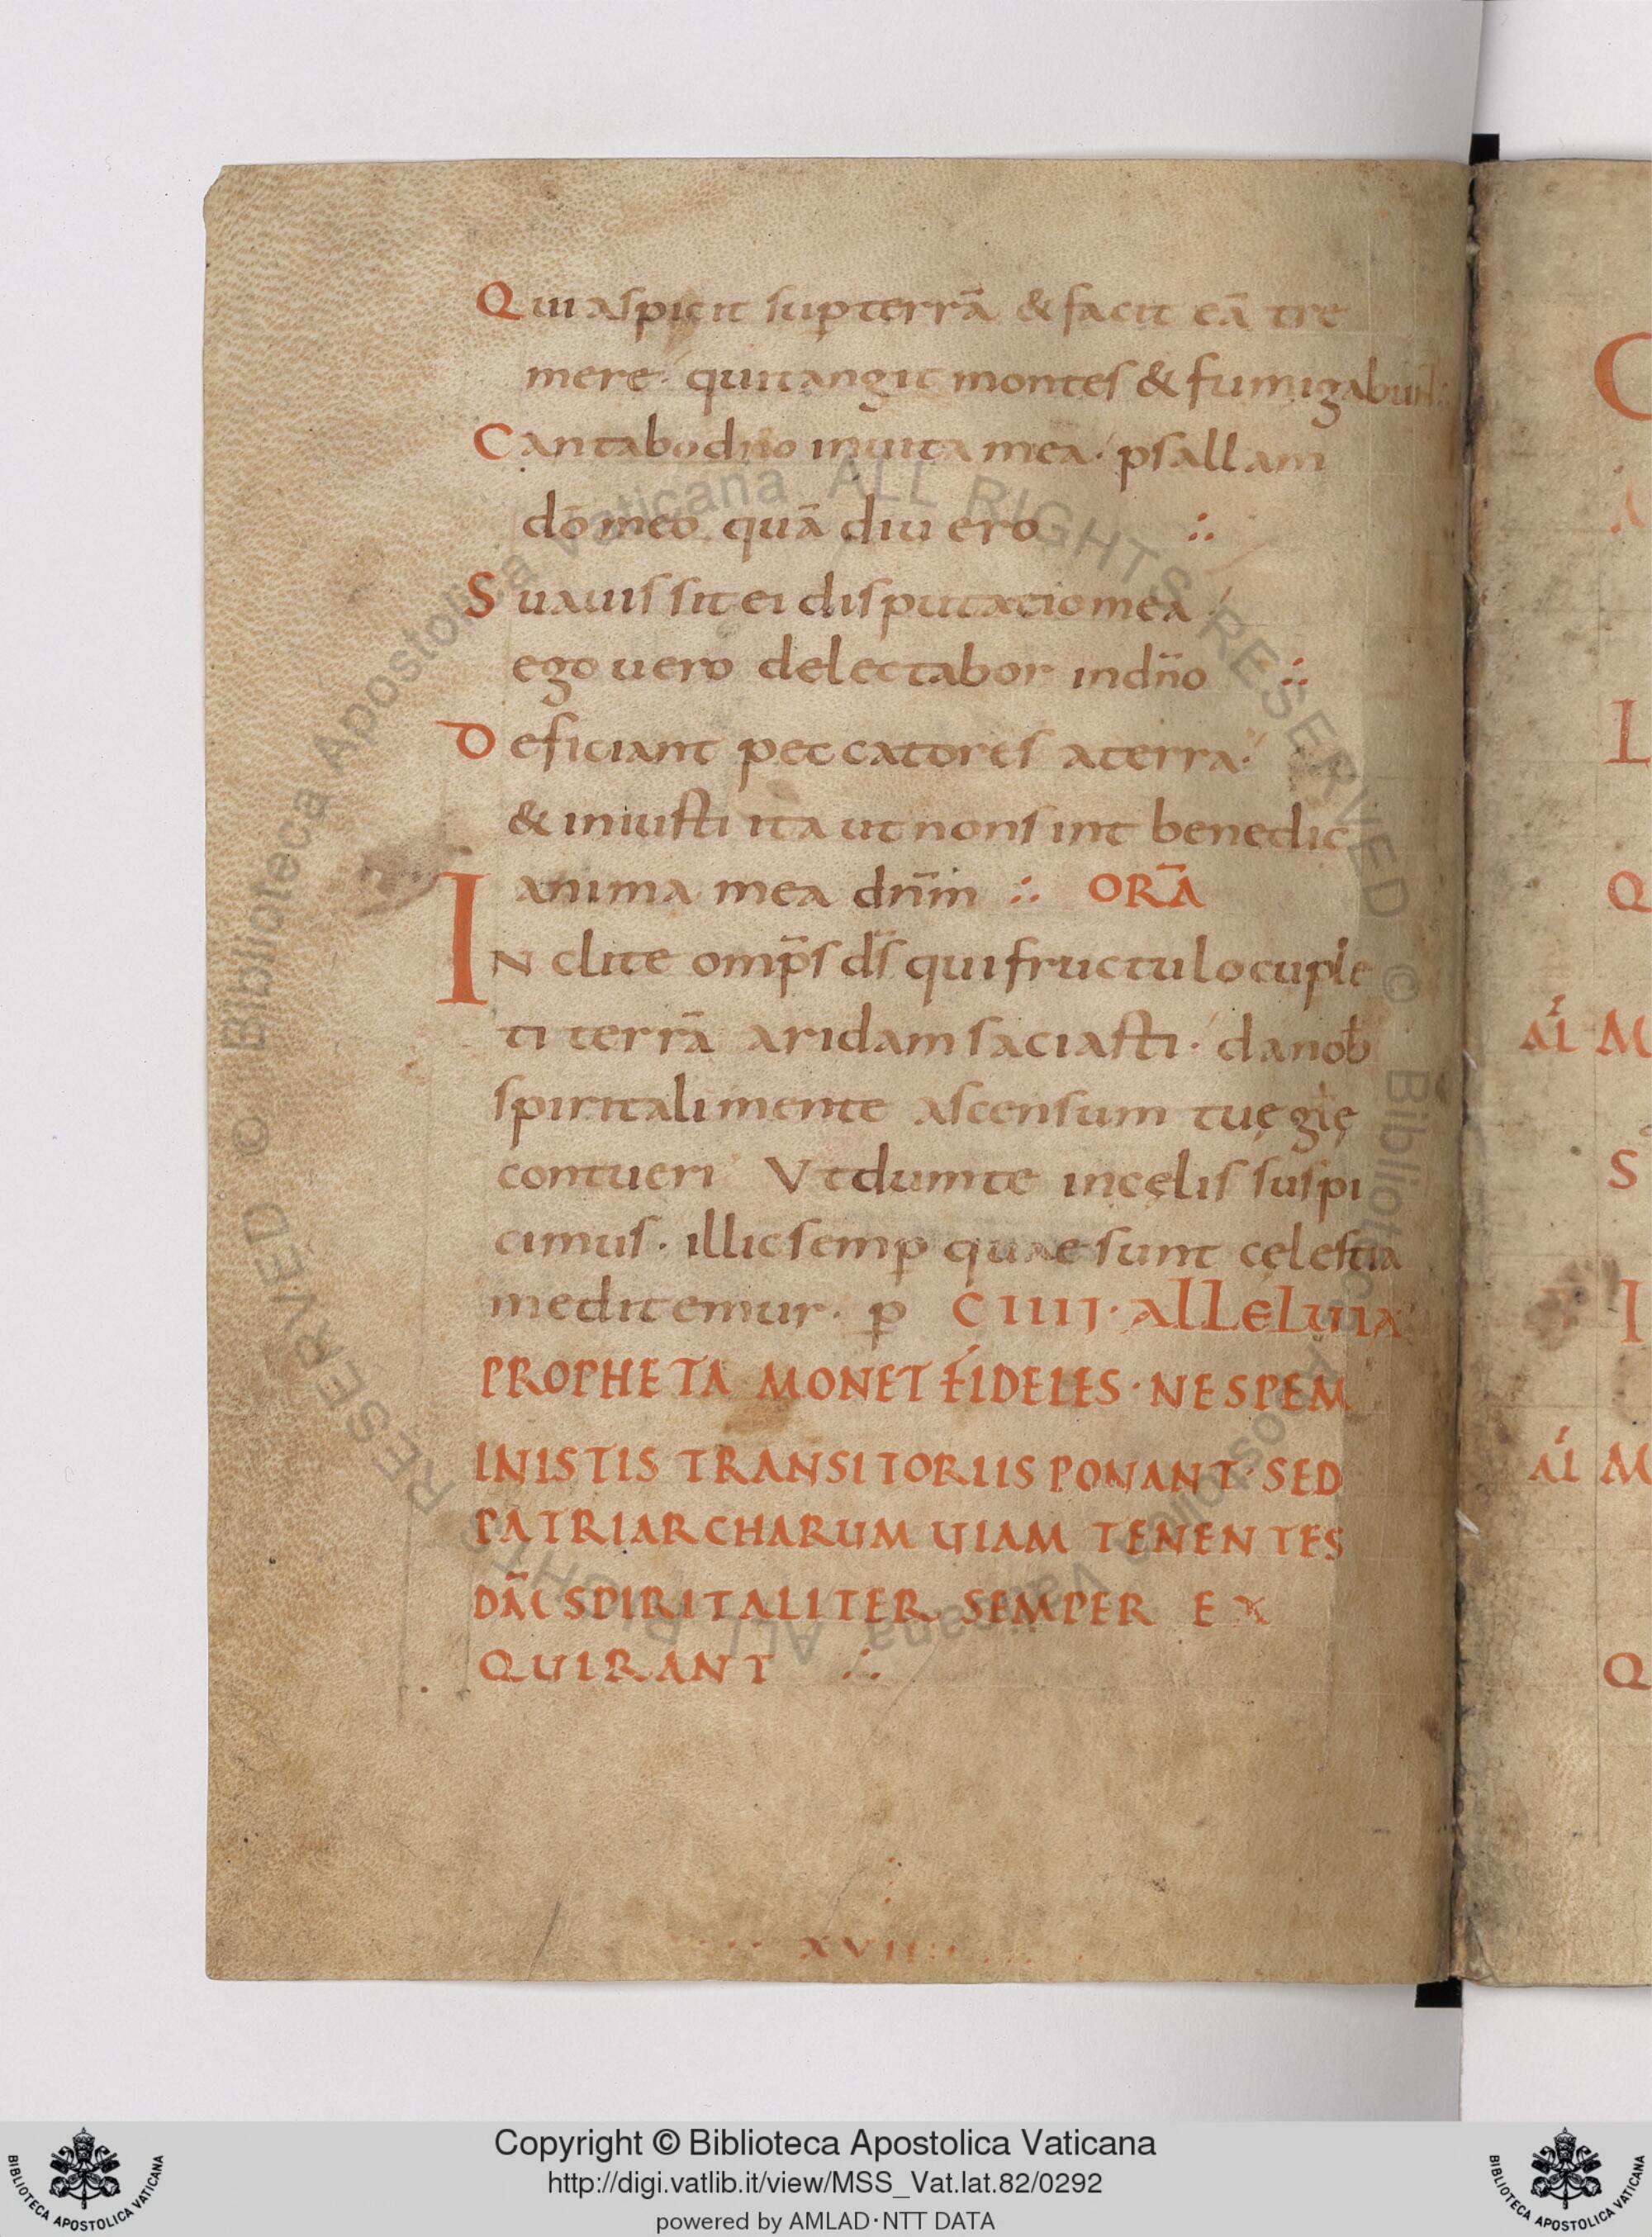 Qui aspicit sup terrā & facit eā tre
mere· qui tangit montes & fumigabunt
Cantabo dno in uita mea· psallam
dō meo quā diu ero ∴
Suauis sit ei disputatio mea
ego uero delectabor in dn̄o ∴
Deficiant peccatores a terra·
& iniusti ita ut non sint benedic
anima mea dn̄m ∴ ORĀ
INclite omp̄s ds̄ qui fructu locuple
ti terrā aridam saciasti· da nob
spiritali mente ascensum tuę glę
contueri Vt dum te in cęlis suspi
cimus· illic semp quae sunt cęlestia
meditemur· p CIIII· ALLELUIA
PROPHETA MONET FIDELES· NE SPEM
IN ISTIS TRANSITORIIS PONANT· SED
PATRIARCHARUM UIAM TENENTES
DM̄ SPIRITALITER SEMPER EX
QUIRANT ∴
XVIII
C
L
Q
AL M
S
I
AL M
Q
© Biblioteca Apostolica Vaticana ALL RIGHTS RESERVED © Biblioteca Apostolica Vaticana ALL RIGHTS RESERVED
BIBLIOTECA APOSTOLICA VATICANA
Copyright © Biblioteca Apostolica Vaticana
http://digi.vatlib.it/view/MSS_Vat.lat.82/0292
powered by AMLAD·NTT DATA
BIBLIOTECA APOSTOLICA VATICANA